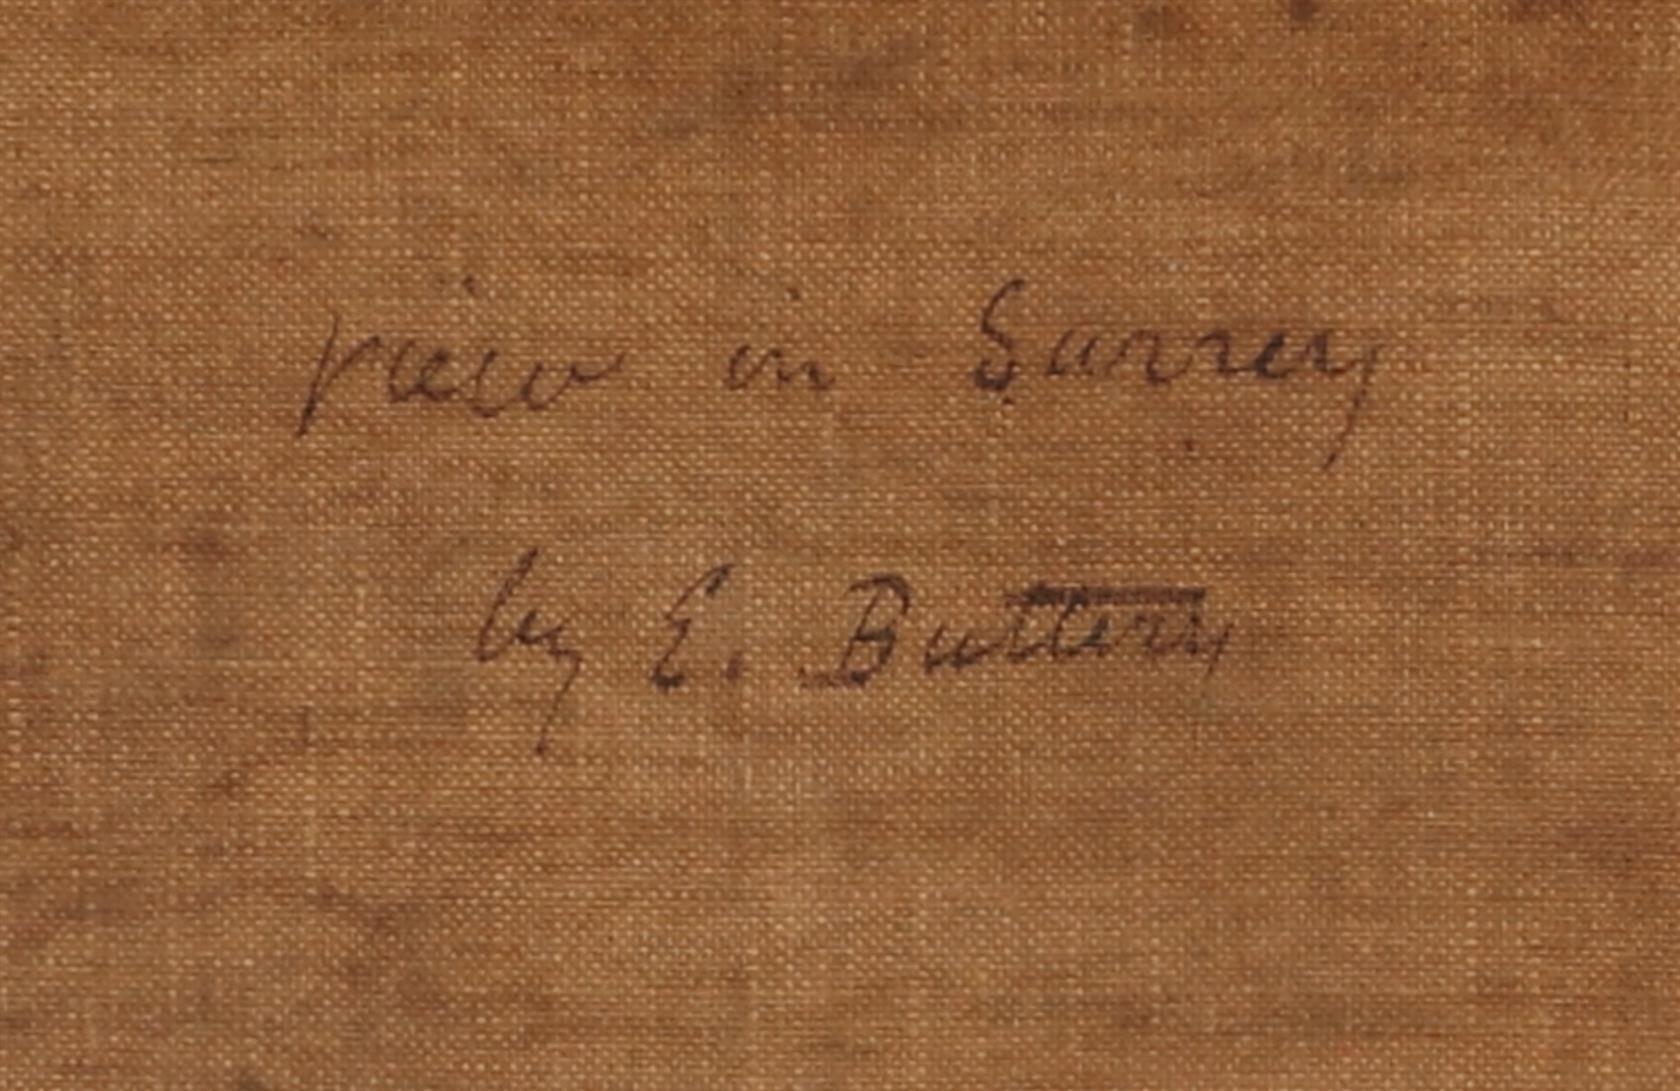 view in Surrey
by E. Buttery